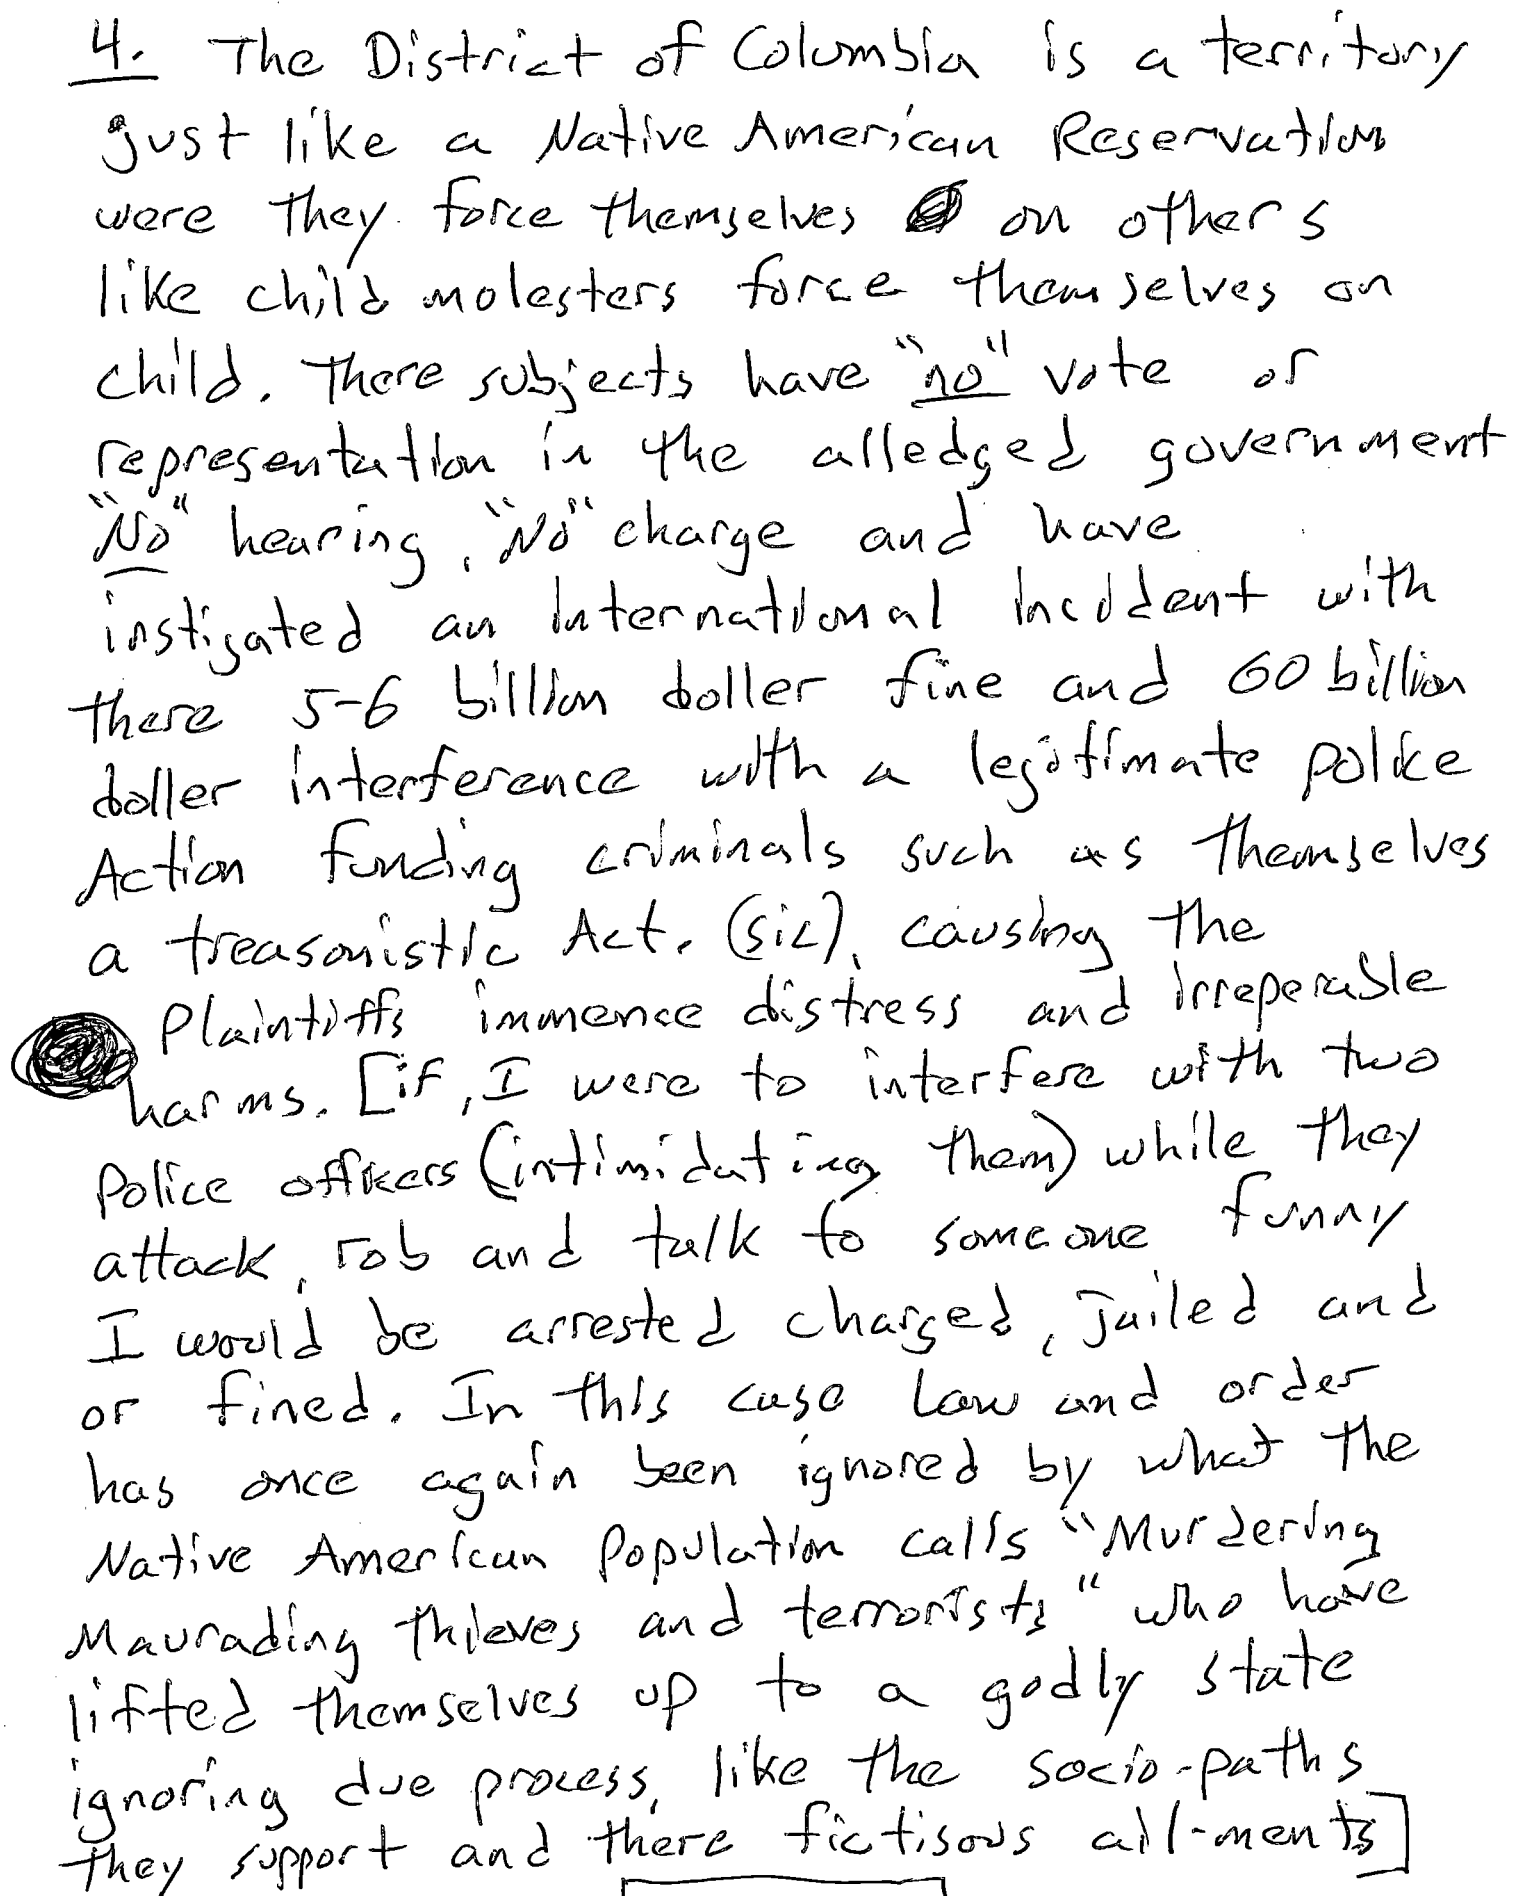 4. The District of Columbia is a territory
just like a Native American Reservation
were they force themselves on others
like child molesters force themselves on
child. There subjects have "no" vote or
representation in the alledged government
"No" hearing, "No" charge and have
instigated an International Incident with
there 5-6 billion doller fine and 60 billion
doller interference with a legitimate police
Action funding criminals such as themselves
a treasonistic Act. (sic), causing the
Plaintiffs immence distress and irreperable
harms. [if, I were to interfere with two
Police officers (intimidating them) while they
attack, rob and talk to someone funny
I would be arrested charged, jailed and
or fined. In this case Law and order
has once again been ignored by what the
Native American Population calls "Murdering
Maurading thieves and terrorists" who have
lifted themselves up to a godly state
ignoring due process, like the socio-paths
they support and there fictisous ail-ments]